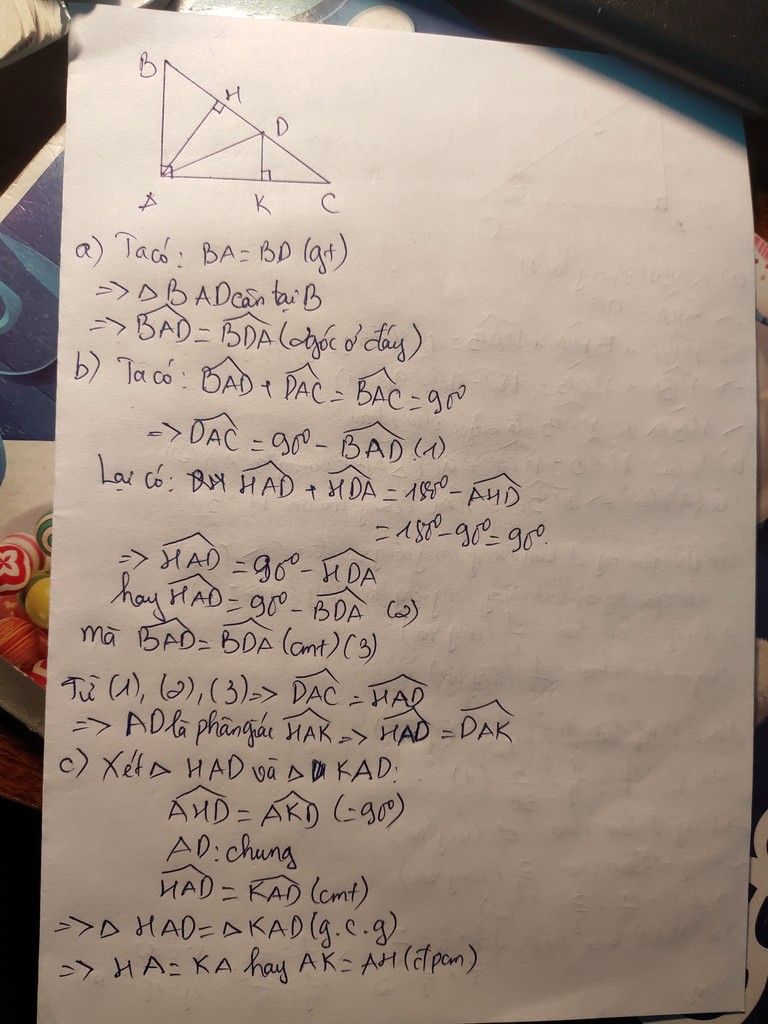 B
H
D
A
K
C
a) Ta có: BA = BD (gt)
=> △ BAD cân tại B
=> BAD = BDA (2 góc ở đáy)
b) Ta có: BAD + DAC = BAC = 90°
=> DAC = 90° - BAD (1)
Lại có: HAD + HDA = 180° - AHD
= 180° - 90° = 90°.
=> HAD = 90° - HDA
hay HAD = 90° - BDA (2)
mà BAD = BDA (cmt) (3)
Từ (1), (2), (3) => DAC = HAD
=> AD là phân giác HAK => HAD = DAK
c) Xét △ HAD và △ KAD:
AHD = AKD (= 90°)
AD: chung
HAD = KAD (cmt)
=> △ HAD = △ KAD (g.c.g)
=> HA = KA hay AK = AH (đpcm)